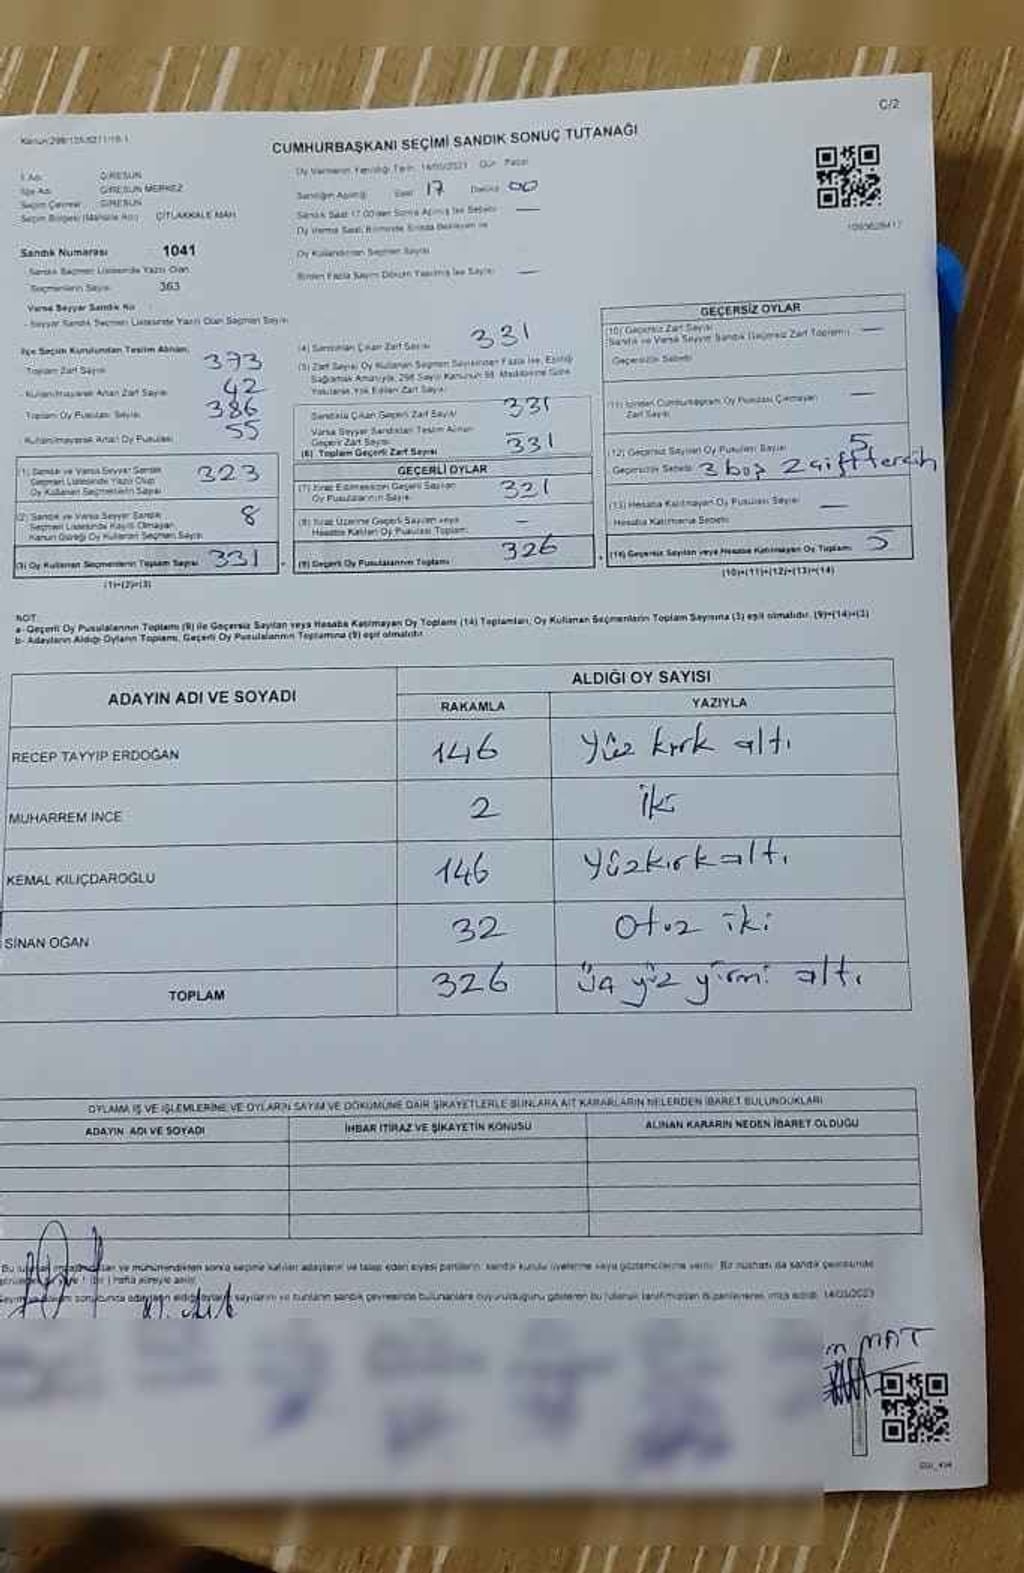 C/2
CUMHURBAŞKANI SEÇİMİ SANDIK SONUÇ TUTANAĞI
İl Adı GİRESUN
İlçe Adı GİRESUN MERKEZ
Seçim Çevresi GİRESUN
Seçim Bölgesi (Mahalle Adı) ÇITLAKKALE MAH
Oy Vermenin Yapıldığı Tarih Gün Pazar
Sandığın Açılışı Saat 17 Dakika 00
Sandık Saat 17.00'den Sonra Açılmış İse Sebebi —
Oy Kullandırılan Seçmen Sayısı
Birden Fazla Sayım Döküm Yapılmış İse Sayısı —
Sandık Numarası 1041
Sandık Seçmen Listesinde Yazılı Olan
Seçmenlerin Sayısı 363
Varsa Seyyar Sandık No
- Seyyar Sandık Seçmen Listesinde Yazılı Olan Seçmen Sayısı
İlçe Seçim Kurulundan Teslim Alınan
Toplam Zarf Sayısı 373
- Kullanılmayarak Artan Zarf Sayısı 42
Toplam Oy Pusulası Sayısı 386
- Kullanılmayarak Artan Oy Pusulası 55
(1) Sandık ve Varsa Seyyar Sandık
Seçmen Listesinde Yazılı Olup
Oy Kullanan Seçmenlerin Sayısı 323
(2) Sandık ve Varsa Seyyar Sandık
Seçmen Listesinde Kayıtlı Olmayan
Kanun Gereği Oy Kullanan Seçmen Sayısı 8
(3) Oy Kullanan Seçmenlerin Toplam Sayısı 331
(1)+(2)=(3)
(4) Sandıktan Çıkan Zarf Sayısı 331
(5) Zarf Sayısı Oy Kullanan Seçmen Sayısından Fazla İse, Eşitliği
Sağlamak Amacıyla, 298 Sayılı Kanunun 98. Maddesine Göre
Yakılarak Yok Edilen Zarf Sayısı
Sandıkta Çıkan Geçerli Zarf Sayısı 331
Varsa Seyyar Sandıktan Teslim Alınan
Geçerli Zarf Sayısı —
(6) Toplam Geçerli Zarf Sayısı 331
GEÇERLİ OYLAR
(7) İtiraz Edilmeksizin Geçerli Sayılan
Oy Pusulalarının Sayısı 321
(8) İtiraz Üzerine Geçerli Sayılan veya
Hesaba Katılan Oy Pusulası Toplamı —
(9) Geçerli Oy Pusulalarının Toplamı 326
GEÇERSİZ OYLAR
(10) Geçersiz Zarf Sayısı
Sandık ve Varsa Seyyar Sandık Geçersiz Zarf Toplamı —
Geçersizlik Sebebi
(11) İçinden Cumhurbaşkanı Oy Pusulası Çıkmayan
Zarf Sayısı —
(12) Geçersiz Sayılan Oy Pusulası Sayısı 5
Geçersizlik Sebebi 3 boş 2 çift tercih
(13) Hesaba Katılmayan Oy Pusulası Sayısı —
Hesaba Katılmama Sebebi
(14) Geçersiz Sayılan veya Hesaba Katılmayan Oy Toplamı 5
(10)+(11)+(12)+(13)=(14)
NOT:
a- Geçerli Oy Pusulalarının Toplamı (9) ile Geçersiz Sayılan veya Hesaba Katılmayan Oy Toplamı (14) Toplamları, Oy Kullanan Seçmenlerin Toplam Sayısına (3) eşit olmalıdır. (9)+(14)=(3)
b- Adayların Aldığı Oyların Toplamı, Geçerli Oy Pusulalarının Toplamına (9) eşit olmalıdır.
ADAYIN ADI VE SOYADI
ALDIĞI OY SAYISI
RAKAMLA YAZIYLA
RECEP TAYYIP ERDOĞAN 146 yüz kırk altı
MUHARREM İNCE 2 iki
KEMAL KILIÇDAROĞLU 146 yüzkırkaltı
SİNAN OĞAN 32 Otuz iki
TOPLAM 326 üç yüz yirmi altı
OYLAMA İŞ VE İŞLEMLERİNE VE OYLARIN SAYIM VE DÖKÜMÜNE DAİR ŞİKAYETLERLE BUNLARA AİT KARARLARIN NELERDEN İBARET BULUNDUKLARI
ADAYIN ADI VE SOYADI İHBAR İTİRAZ VE ŞİKAYETİN KONUSU ALINAN KARARIN NEDEN İBARET OLDUĞU
MAT